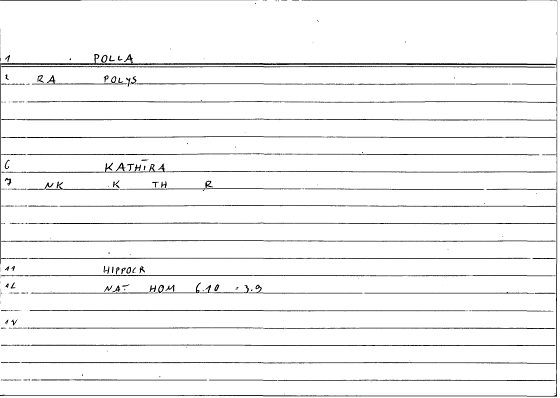 1 POLLA
2 RA POLYS
6 KATHĪRA
7 NK K TH R
11 HIPPOCR
12 NAT HOM 6.10 = 3.9
1V